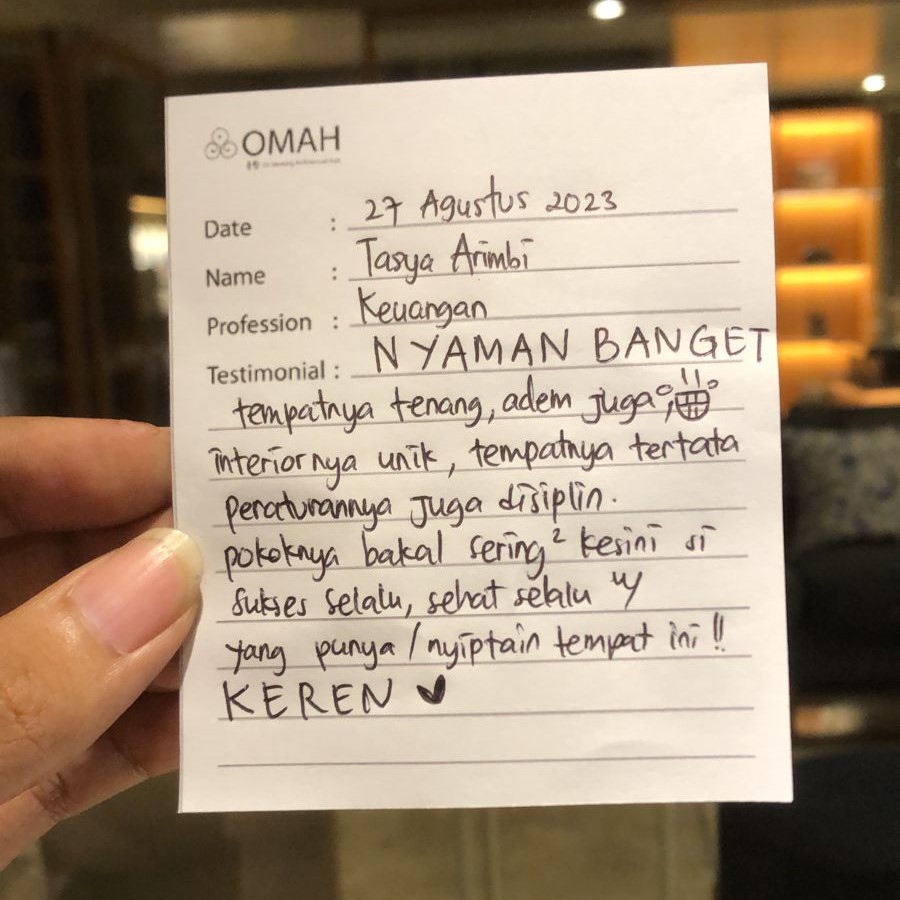 OMAH
Date : 27 Agustus 2023
Name : Tasya Arimbi
Profession : Keuangan
Testimonial : NYAMAN BANGET
tempatnya tenang, adem juga,
interiornya unik, tempatnya tertata
peraturannya juga disiplin.
pokoknya bakal sering² kesini si
sukses selalu, sehat selalu u/
yang punya / nyiptain tempat ini !!
KEREN ♥